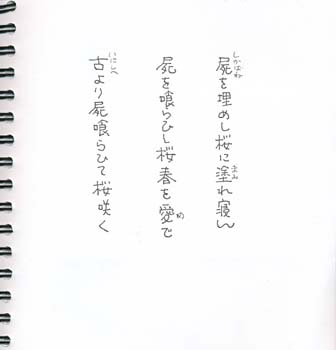 屍を埋めし桜に塗れ寝ん
屍を喰らひし桜春を愛で
古より屍喰らひて桜咲く